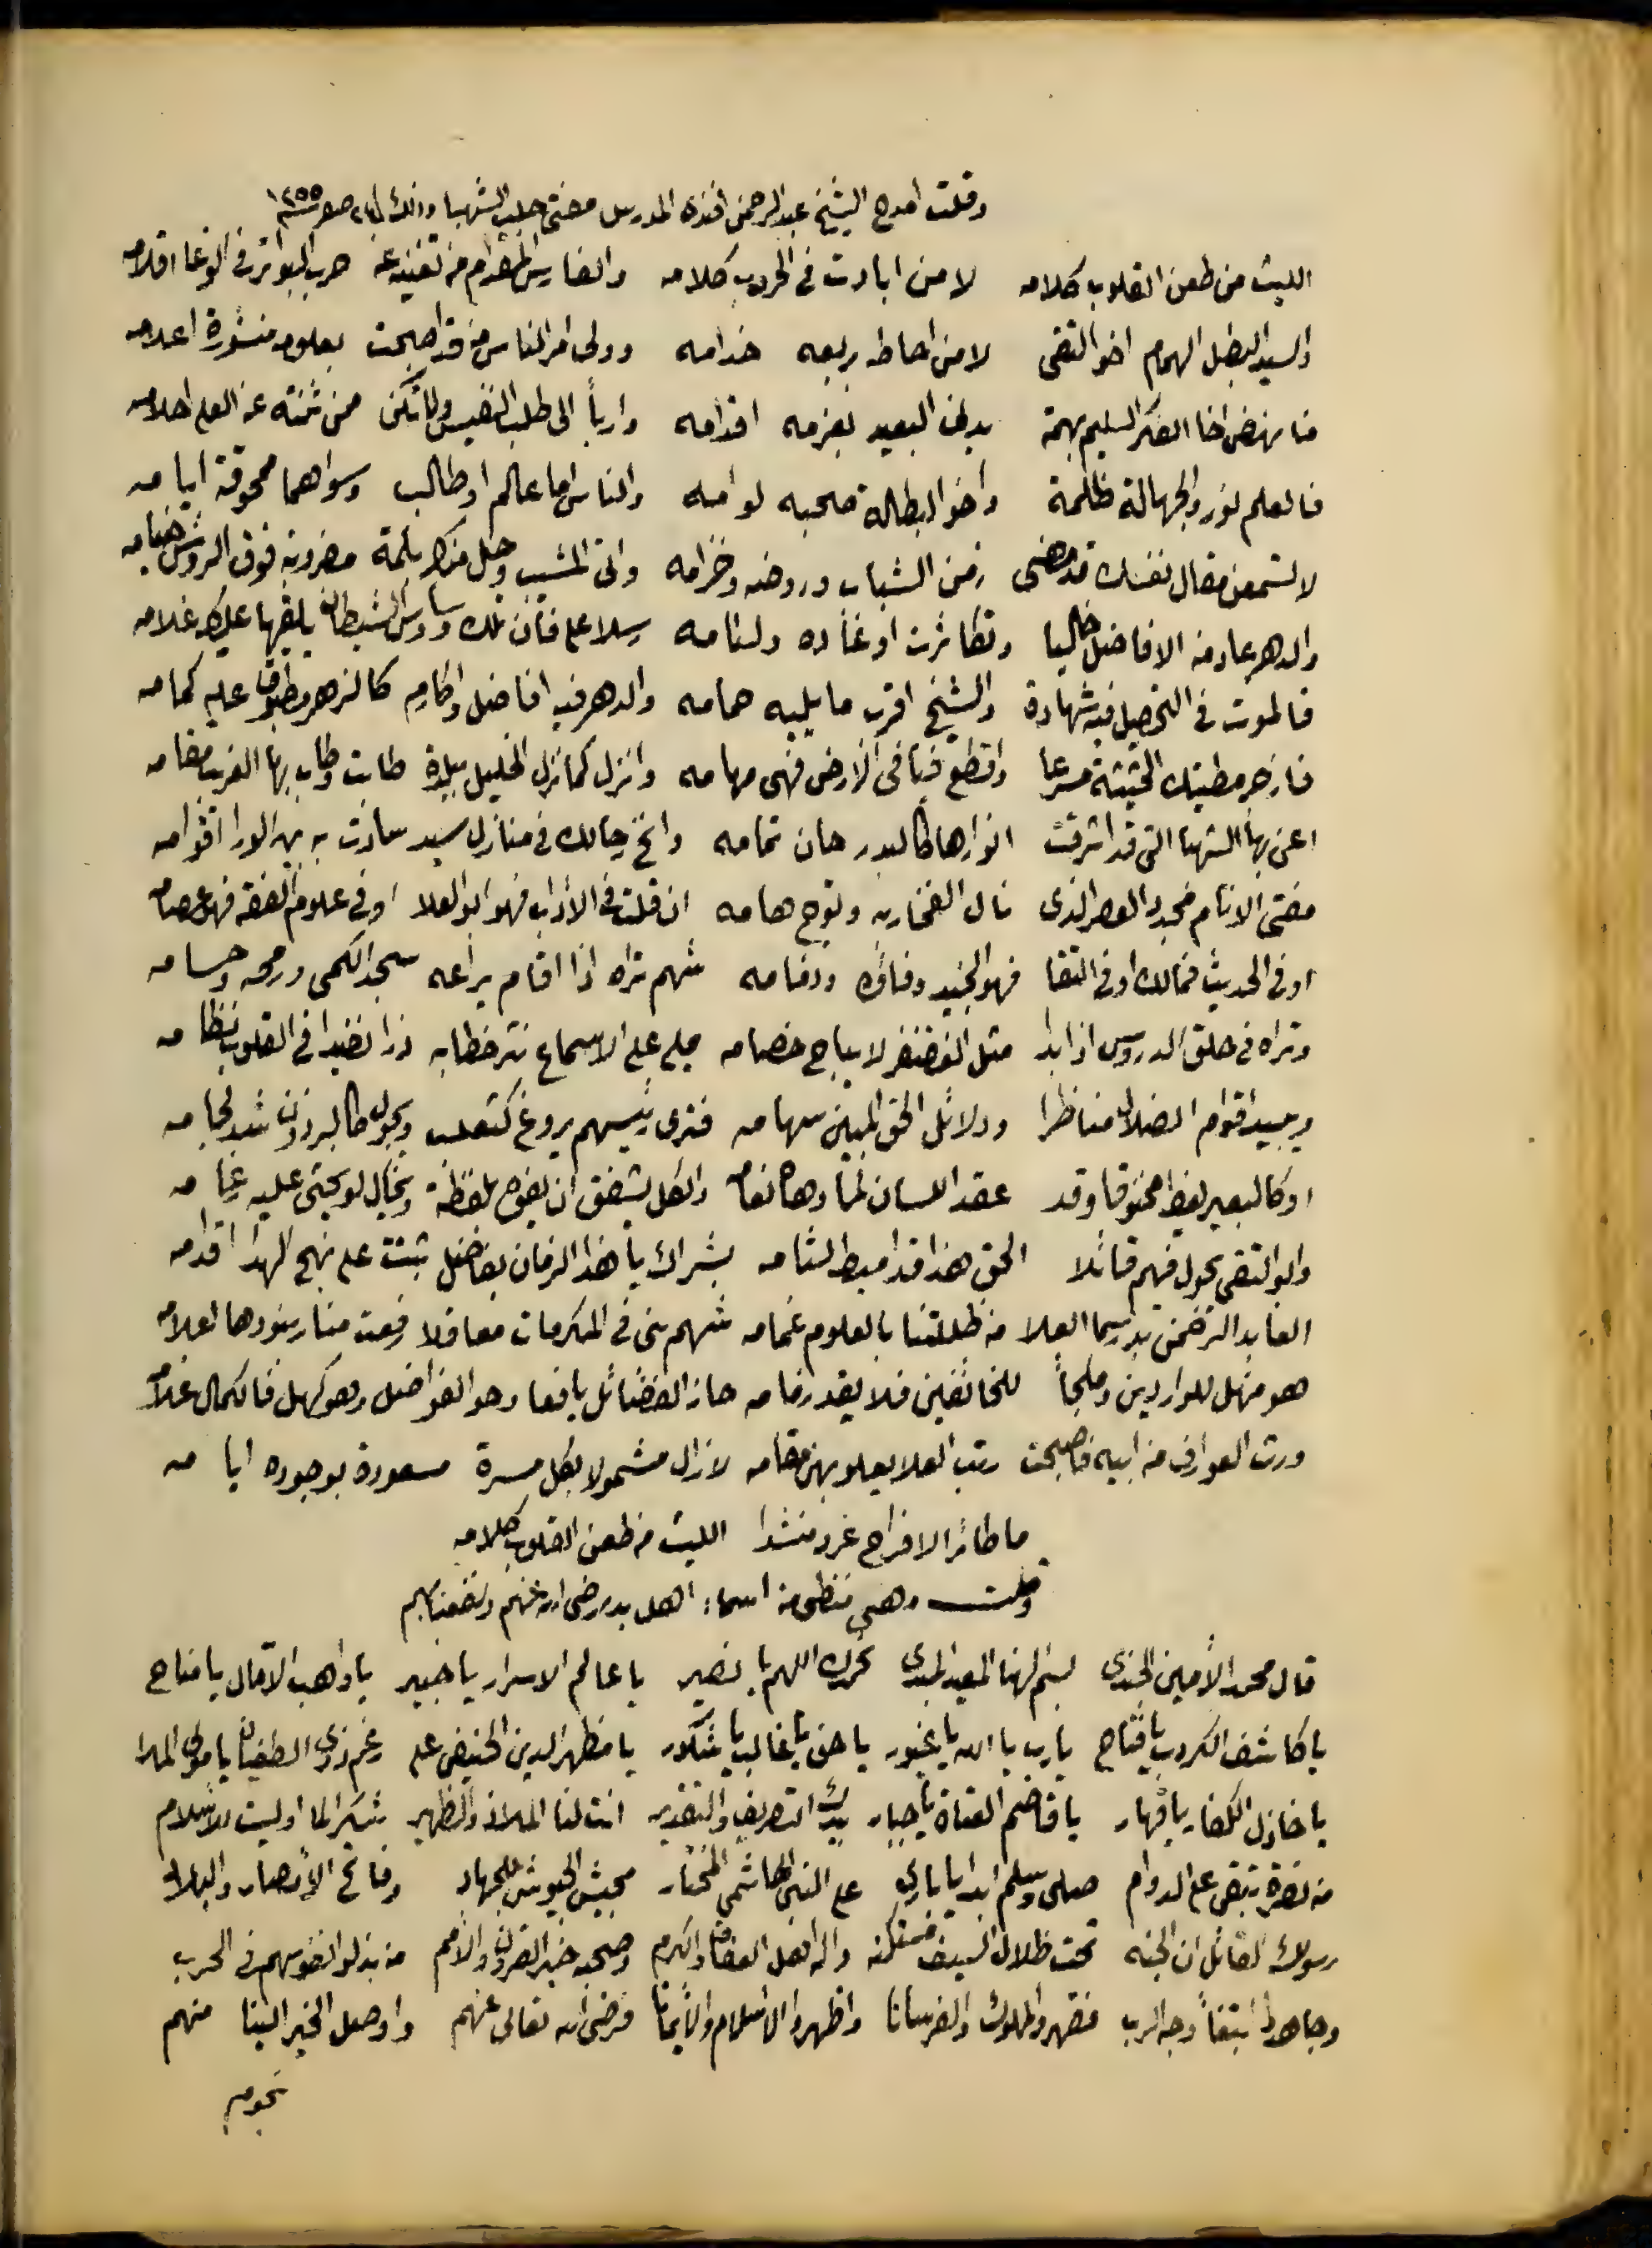 وقلت امدح الشيخ عبد الرحمن افندى المدرس مفتى حلب الشهبا وذلك في ٢٤ صفر سنة ١٢٥٥
الليث من طعن القلوب كلامه لا من ابادت في الحروب كلامه والفارس المقدام من تغنيه عن ضرب البواتر في الوغا اقلامه
والسيد البطل الهمام اخو التقى لا من احاط بربعه خدامه وولى امر الناس من قد اصبحت بعلومه منشورة اعلامه
فانهض اخا الفكر السليم بهمة يدني البعيد بعزمه اقدامه واربأ الى طلب النفيس ولا تكن ممن ثنته عن العلى احلامه
فالعلم نور والجهالة ظلمة واخو البطالة صحبه لوامه والناس اما عالم او طالب وسواهما ممحوقة ايامه
لا تسمعن مقال نفسك قد مضى زمن الشباب وروضه وخزامه واتى المشيب وحل منك بلمة مضروبة فوق الرؤس خيامه
والدهر عاد من الافاضل خاليا وتكاثرت اوغاده ولئامه رسلا على فان تلك وساوس الشيطان يلقيها عليك غلامه
فالموت في التحصيل فيه شهادة والشيخ اقرب ما يليه حمامه والدهر فيه افاضل واكارم كالزهر مطبوق عليه كمامه
فازجر مطيتك الحثيثة مسرعا واقطع فيافى الارض فهى مهامه وانزل كما نزل الخليل ببلدة طابت وطاب بها الغريب مقامه
اعنى بها الشهبا التى قد اشرقت انوارها كالبدر حان تمامه وانخ رحالك في منازل سيد سادت به بين الورا اقوامه
مفتى الانام مجدد العصر الذى نال الفخار به وتوج هامه ان قلت في الأداب فهو ابو العلا او في علوم الفقه فهو عصامه
او في الحديث فمالك او في التقا فهو الجنيد وفاؤه وذمامه شهم تراه اذا اقام يراعه سجد الكمى ورمحه وحسامه
وتراه في حلق الدروس اذا بدا مثل الغضنفر لا يباح خصامه يملى على الاسماع نثر خطابه درا نضيدا في القلوب نظامه
ويبيد اقوام الضلال مناظرا ودلائل الحق المبين سهامه فترى رئيسهم يروغ كثعلب ويجول كالبرذون شد لجامه
او كالبعير يغط مخنوقا وقد عقد اللسان لما دهاه لغامه والكل يشفق ان يفوه بلفظة ويخال لو يحثى عليه رغامه
وابو التقى يجول فيهم قائلا الحق هذا قد اميط لثامه بشراك يا هذا الزمان بفاضل ثبتت على نهج الهدا اقدامه
العابد الرحمن بدر سما العلا من ظللتنا بالعلوم غمامه شهم بنى في المكرمات معاقلا رفعت منار بنودها اعلامه
هو منهل للواردين وملجأ للخائفين فلا يقد زمامه حاز الفضائل يافعا وحوا الفواضل وهو كهل فالكمال غلامه
ورث العوارف من ابيه فاصبحت رتب العلا يعلو بهن مقامه لا زال مشمولا بكل مسرة مسعودة بوجوده ايامه
ما طائر الافراح غرد منشدا الليث من طعن القلوب كلامه
وقلت وهى منظومة اسماء اهل بدر رضى الله عنهم ونفعنا بهم
قال محمد الأمين الجندى بسم الهنا المعيد المبدى نحمدك اللهم يا نصير يا عالم الاسرار يا خبير يا واهب الآمال يا مناح
يا كاشف الكروب يا فتاح يا رب يا الله يا غيور يا حق يا غالب يا شكور يا مظهر الدين الحنيفى على رغم ذوى الطغيان يا مولى الملا
يا خاذل الكفار يا قهار يا قاصم العتاة يا جبار بيدك التصريف والتقدير انت لنا الملاذ والظهير شكرا لما اوليت للاسلام
من نصرة تبقى على الدوام صلى وسلم ابدا يا بارى على النبى الهاشمى المختار مجيش الجيوش للجهاد وفاتح الأمصار والبلاد
رسولك القائل ان الجنه تحت ظلال السيف مستكنه واله اهل العفاف والكرم وصحبه خير القرون والامم من بذلوا نفوسهم في الحرب
وجاهدوا ابتغاء وجه الرب فقهروا الملوك والفرسانا واظهروا الاسلام والأيمانا فرضى الله تعالى عنهم واوصل الخير الينا منهم
نجوم